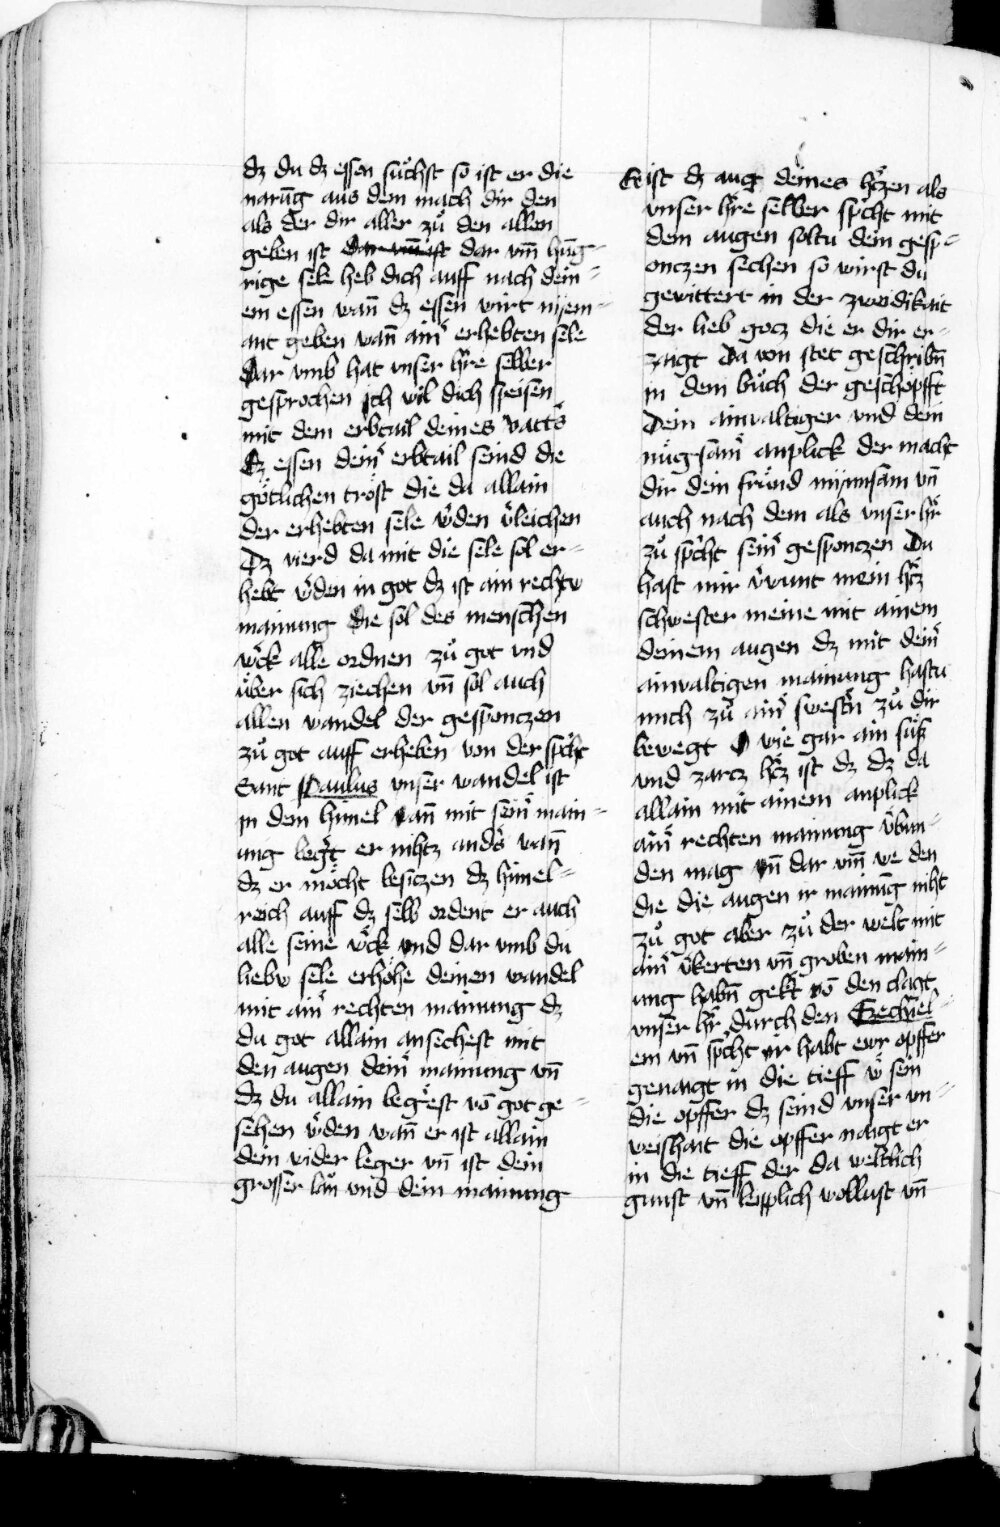 dz du dz essen suͤchst so ist er die
narūg aus dem mach dir den
als der dir aller zuͦ den allen
geben ist dar vm̄ ist dar vm̄ hūg-
rige sele heb dich auff nach dein-
em essen wañ dz essen wirt niem-
ant geben wañ ain͛ erhebten sele
Dar vmb hat vnser h͛re selber
gesprochen ich wil dich speisen
mit dem erbtail deines vatt͛s
Dz essen dein͛ erbtail seind die
goͤtlichen troͤst die da allain
der erhebten sele w͛den v͛leichen
Dz vierd da mit die sele sol er-
hebt w͛den in got dz ist ain rechtw
mainung Die sol des menschen
w͛ck alle ordnen zuͦ got vnd
uͤber sich ziechen vñ sol auch
allen wandel der gesponczen
zuͦ got auff erheben von der sp͛cht
Sant Paulus vnser wandel ist
in dem himel wañ mit sein͛ main-
ung legt er nihtz and͛s wañ
dz er moͤcht besiczen dz himel-
reich auff dz selb ordent er auch
alle seine w͛ck vnd dar vmb du
liebw sele erhoͤhe deinen wandel
mit ain͛ rechten mainung dz
du got allain ansechest mit
den augen dein͛ mainung vñ
dz du allain beg͛est võ got ge-
sehen w͛den wañ er ist allain
dein wider leger vñ ist dein
grosser lau vnd dein mainung
Er ist dz aug deines h͛czen als
vnser h͛re selber sp͛cht mit
dem augen soltu dein gesp-
onczen sechen so wirst du
gewittert in der zwidikait
der lieb gocz die er dir er-
zaigt Da von stet geschribñ
in dem buͦch der geschoͤpfft
Dein ainvaltiger vnd dem
nuͤgsam͛ anplick der macht
dir dein fruͤnd mynnsam vñ
auch nach dem als vnser h͛r
zuͦ sp͛cht sein͛ gesponczen Du
hast mir v͛wunt mein h͛cz
schwester meine mit ainem
deinem augen dz mit dein͛
ainvaltigen mainung hastu
mich zuͦ ain͛ swest͛n zuͦ dir
bewegt O wie gar ain suͤß
vnd zarcz h͛cz ist dz dz da
allain mit ainem anplick
ain͛ rechten mainung v͛bun-
den mag vñ dar vm̄ we den
die die augen ir mainūg niht
zuͦ got aber zuͦ der welt mit
ain͛ v͛kerten vñ groben main-
ung habñ gek͛t võ den clagt
vnser h͛r durch den Ezechiel-
em vñ sp͛cht ir habt ewr opffer
genaigt in die tieff w͛ sein
die opffer dz seind vnser vn-
weishait die opffer naigt er
in die tieff der da weltlich
gunst vñ leipplich wollust vñ